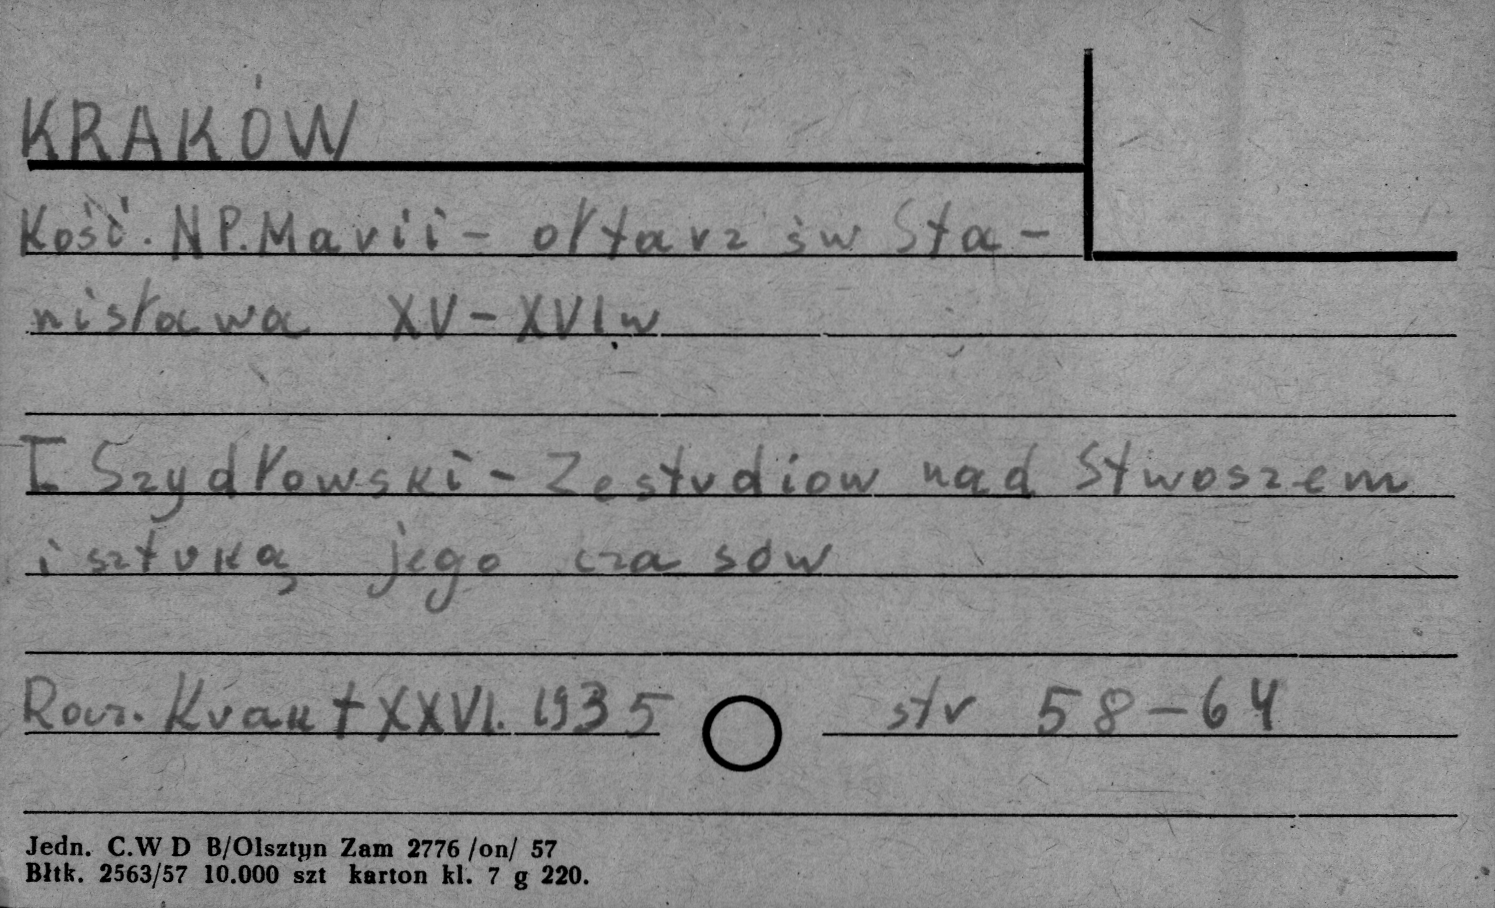 KRAKÓW
Kość. NP. Marii - ołtarz św Sta-
nisława XV-XVI w
I Szydłowski - Ze studiow nad Stwoszem
i sztuką jego czasów
Rocz. Krak t XXVI. 1935 str 58-64
Jedn. C.W D B/Olsztyn Zam 2776 /on/ 57
Błtk. 2563/57 10.000 szt karton kl. 7 g 220.